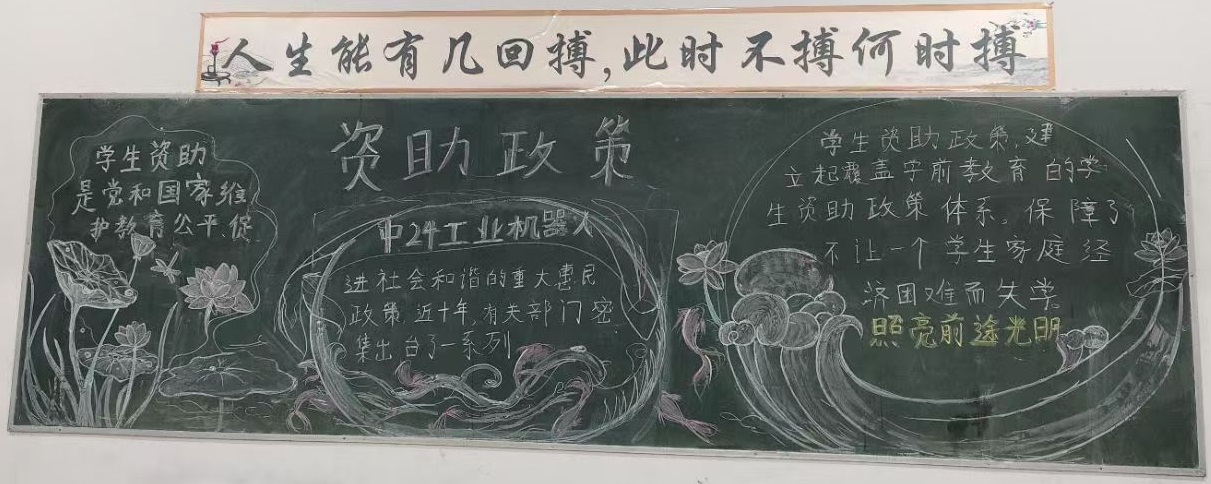 人生能有几回搏,此时不搏何时搏
资助政策
学生资助
是党和国家维
护教育公平,促
中24工业机器人
进社会和谐的重大惠民
政策,近十年,有关部门密
集出台了一系列
学生资助政策,建
立起覆盖学前教育的学
生资助政策体系。保障了
不让一个学生家庭经
济困难而失学
照亮前途光明